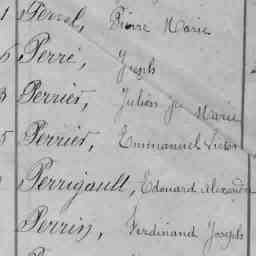 1 Perrel, Pierre Marie
6 Perré, Joseph
3 Perrier, Julien Marie
5 Perrier, Emmanuel Victor
Perrigault, Edouard Alexandre
Perrin, Ferdinand Joseph